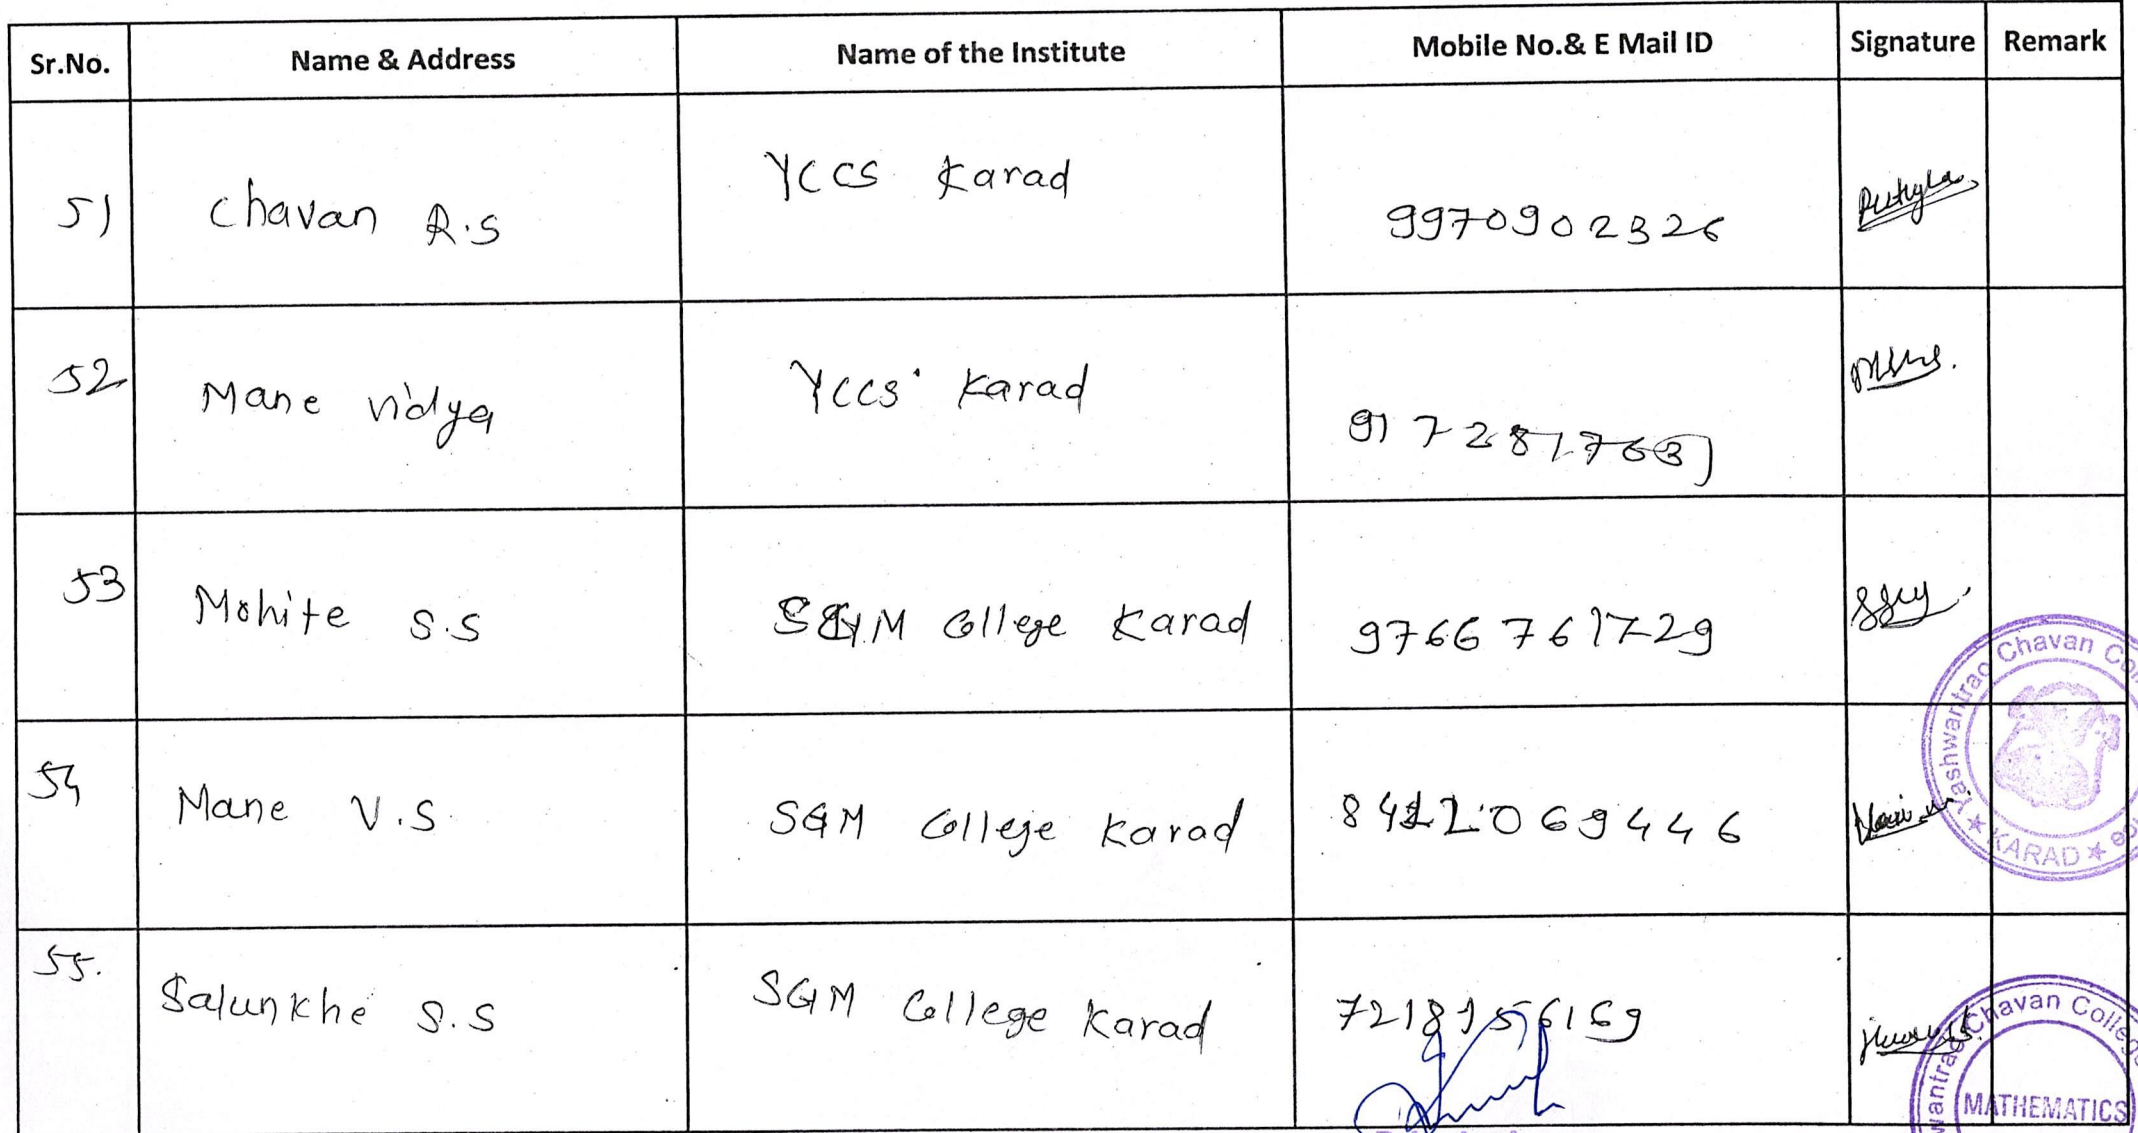 Sr.No. Name & Address Name of the Institute Mobile No.& E Mail ID Signature Remark
51) Chavan R.S YCCS Karad 9970902326
52 Mane Vidya YCCS Karad
53 Mohite S.S SGM College Karad 9766761729
54 Mane V.S SGM College Karad
55. Salunkhe S.S SGM College Karad 7218156169
Yashwantrao Chavan Co
KARAD
wantrao Chavan College
MATHEMATICS